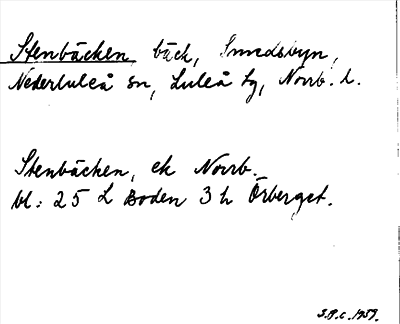 Stenbäcken, bäck, Smedsbyn,
Nederluleå sn, Luleå tg, Norrb. l.
Stenbäcken, ek Norrb.
bl: 25 L Boden 3 h Örberget.
1959.